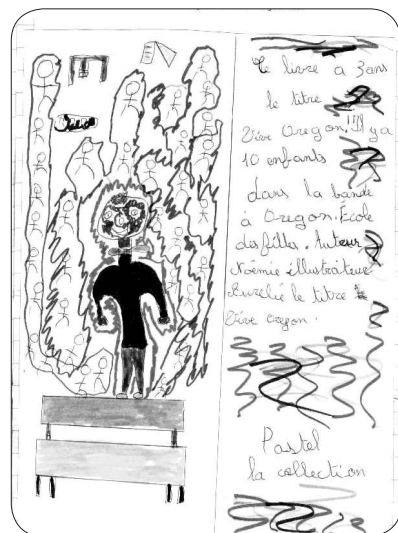 Le livre a 3 ans
le titre
Vive Oregon!!! Il y a
10 enfants
dans la bande
à Oregon. École
des filles. Auteur
Noémie illustrateur
Aurélie le titre
Vive oregon.
Pastel
la collection